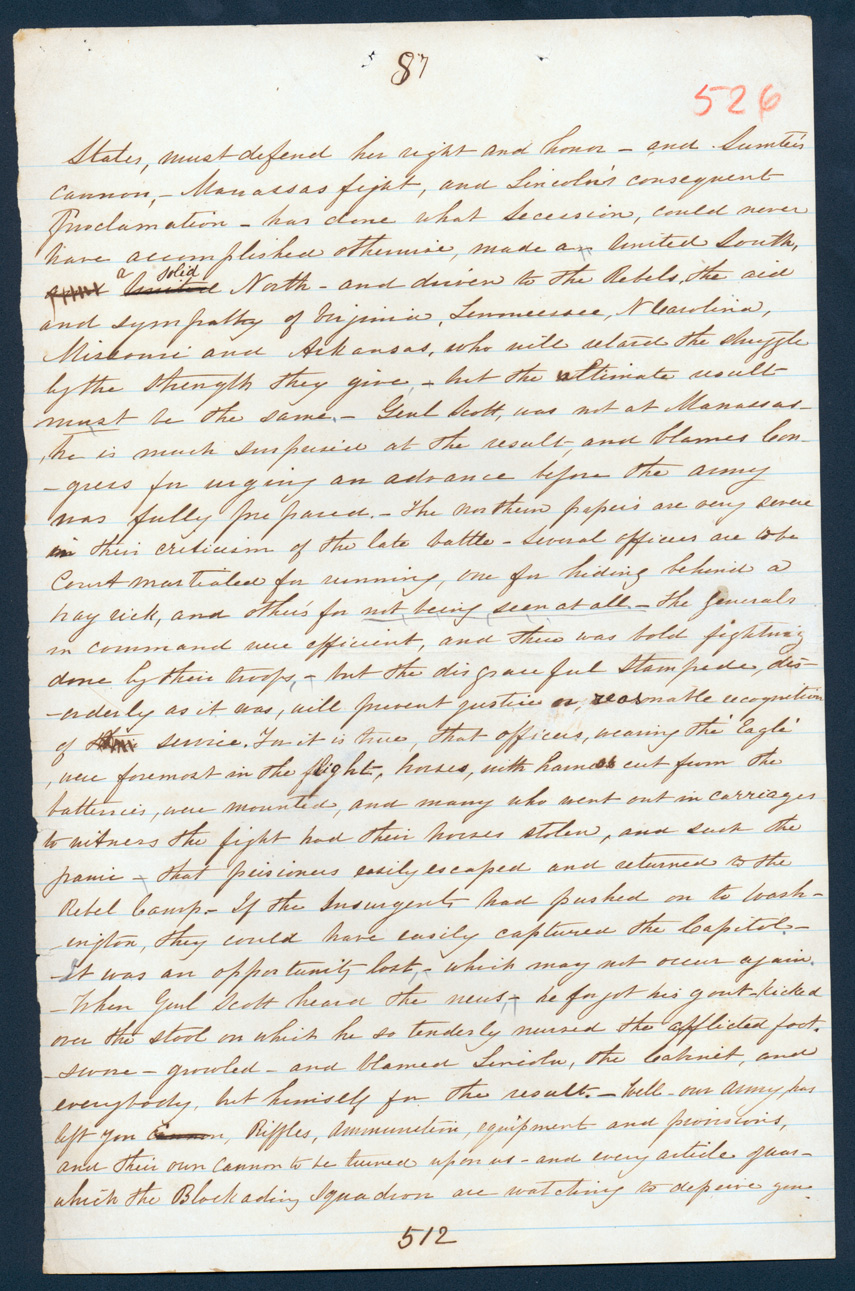 87
526
States, must defend her right and honor - and Sumter's
cannon, - Manassas fight, and Lincoln's consequent
Proclamation - has done what Secession, could never
have accomplished otherwise, made a - United South,
a solid
United North - and driven to the Rebels, the aid
and sympathy of Virginia, Tennessee, N Carolina,
Missouri and Arkansas, who will retard the struggle
by the strength they give, - but the ultimate result
must be the same. - Genl Scott, was not at Manassas -
he is much surprised at the result, and blames Con-
-gress for urging an advance before the army
was fully prepared. - The northern papers are very severe
in their criticism of the late battle - several officers are to be
Court martialed for running, one for hiding behind a
hay rick, and others for not being seen at all - The generals
in command were efficient, and there was bold fighting
done by their troops, - but the disgraceful Stampede, dis-
-orderly as it was, will prevent justice or reasonable recognition
of service. For it is true, that officers, wearing the 'Eagle'
were foremost in the flight, horses, with harness cut from the
batteries, were mounted, and many who went out in carriages
to witness the fight had their horses stolen, and such the
panic - that prisoners easily escaped and returned to the
Rebel Camp. - If the Insurgents had pushed on to Wash-
-ington, they could have easily captured the Capitol. -
It was an opportunity lost, - which may not occur again.
- When Genl Scott heard the news - he forgot his gout - kicked
over the stool on which he so tenderly nursed the afflicted foot.
- swore - growled - and blamed Lincoln, the Cabinet, and
everybody, but himself for the result. - Well - our army has
left you Cannon, Riffles, ammunition, equipment and provisions,
and their own cannon to be turned upon us - and every article
which the Blockading Squadron are watching to deprive you
512